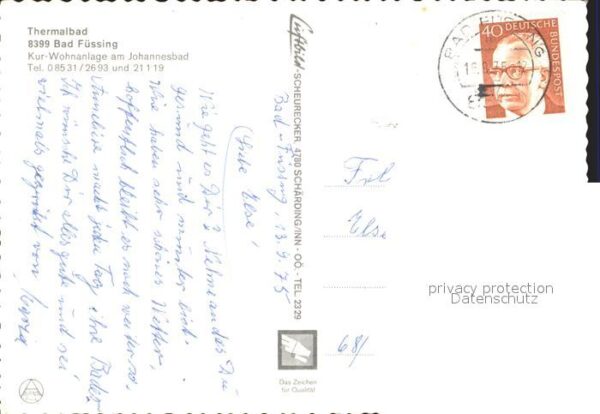 Thermalbad
8399 Bad Füssing
Kur-Wohnanlage am Johannesbad
Tel. 08531/2693 und 21119
Luftbild-SCHEURECKER, 4780 SCHÄRDING/INN - OÖ. - TEL. 2329
Bad-Füssing, 13.9.75
Liebe Else!
Wie geht es Dir? Nehme an das Du
gesund und munter bist.
Wir haben sehr schönes Wetter,
hoffentlich bleibt es noch weiter so.
Anneliese macht jeden Tag ihre Bäder.
Ich wünsche Dir alles gute und sei
vielmals gegrüßt von
BAD FÜSSING
40
DEUTSCHE
BUNDESPOST
Frl
Else
68/
privacy protection
Datenschutz
Das Zeichen
für Qualität